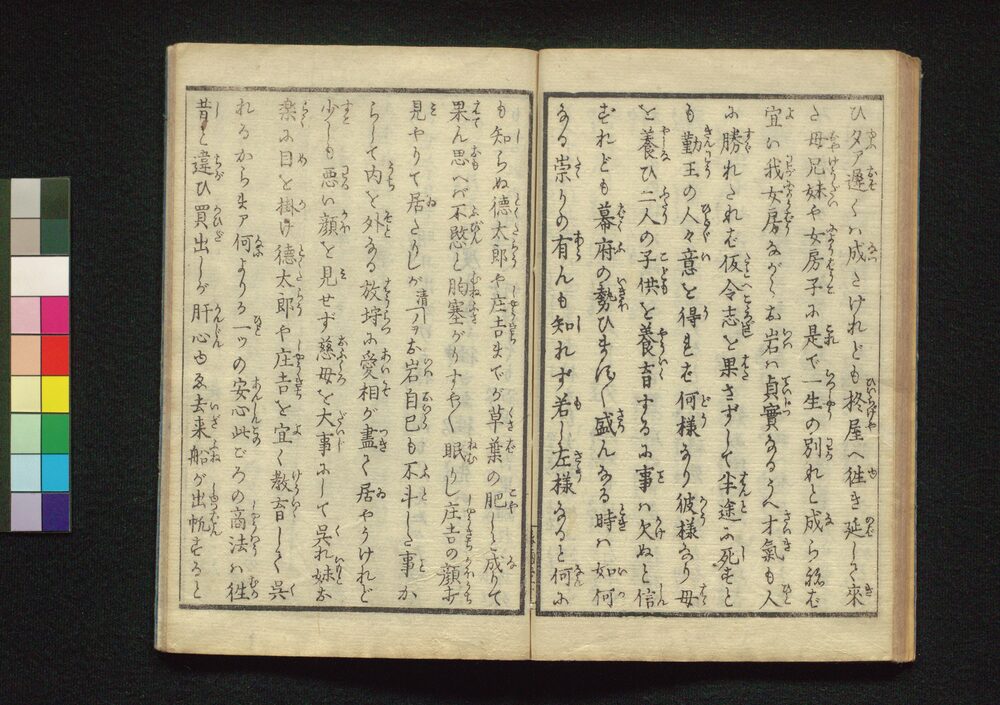 ひ夕ア遲くハ成さけれども柊屋へ徃き延しく來
さ母兄妹や女房子に是で一生の別れと成ら祢バ
宜い我女房ながらお岩ハ貞實なるうへ才氣も人
に勝れされバ仮令志を果さずして半途に死すと
も勤王の人々意を得まバ何樣なり彼樣なり母
を養ひ二人の子供を養育するに事ハ欠ぬと信
ずれども幕府の勢ひまだ〳〵盛んなる時ハ如何
なる祟りの有んも知れず若し左樣なると何に
も知らぬ德太郎や庄吉までが草葉の肥しと成りて
果ん思へバ不愍と胸塞がりすや〳〵眠りし庄吉の顏打
見やりて居たりしが清一ヲお岩自己も不斗した事か
らして内を外なる放埓に愛相が盡く居やうけれど
少しも悪い顏を見せず慈母を大事にして呉れ妹お
楽に目を掛け德太郎や庄吉を宜く教育しく呉
れるからまア何よりる一ツの安心此ごろの商法ハ徃
昔と違ひ買出しが肝心ゆゑ去来船が出帆すると